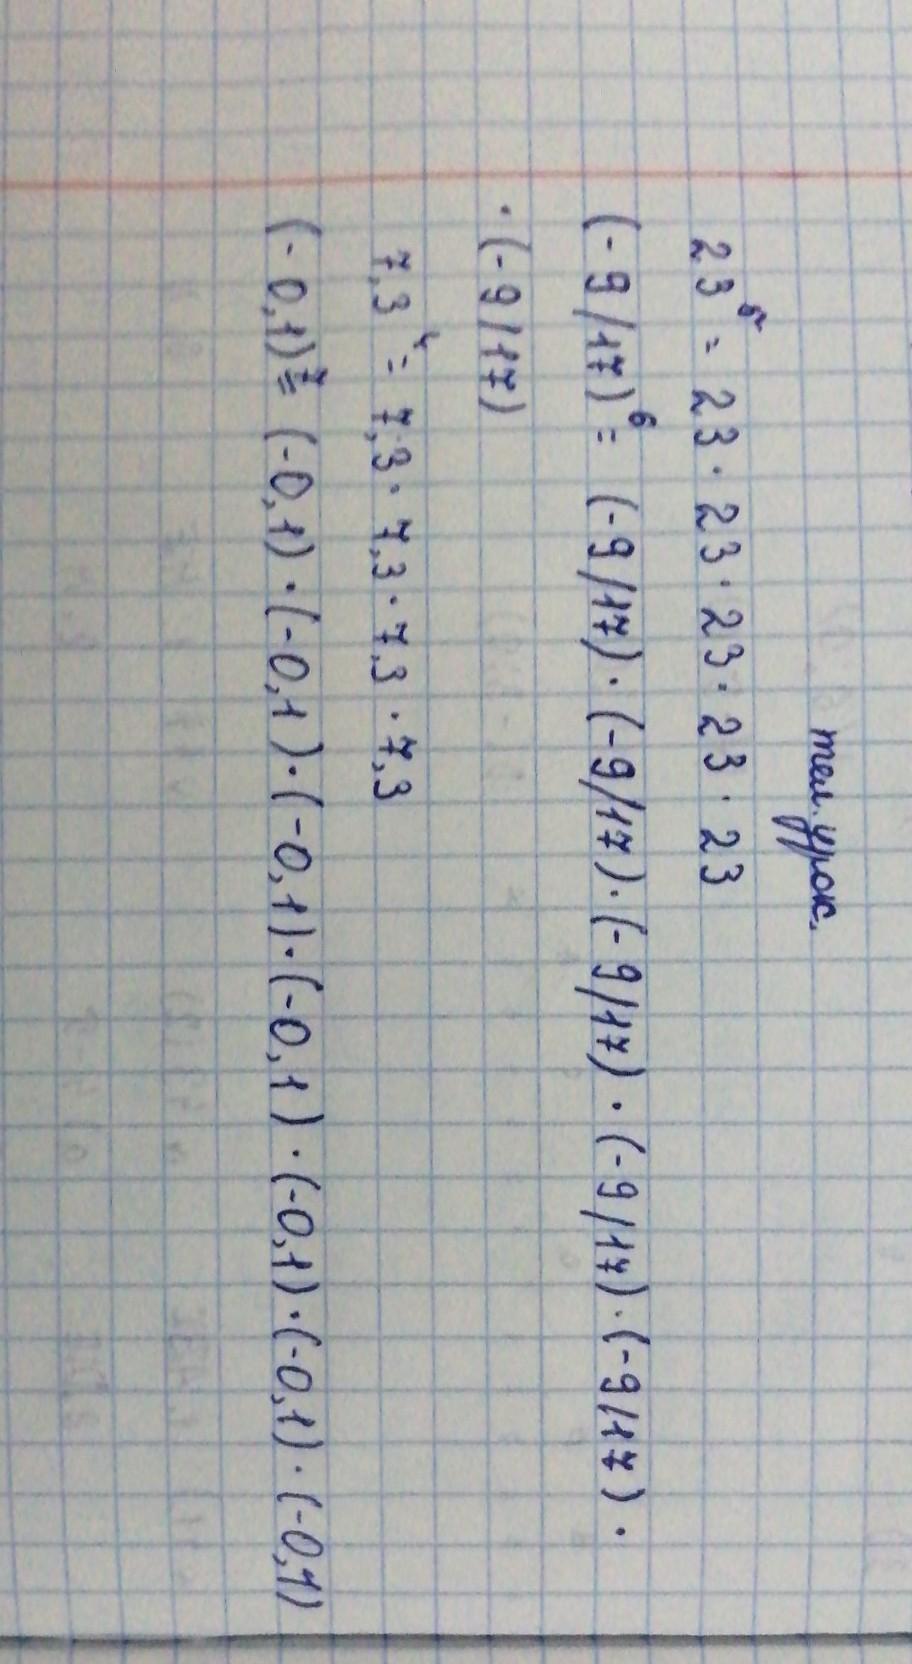 тел. урок.
23⁵ = 23 · 23 · 23 · 23 · 23
(-9/17)⁶ = (-9/17) · (-9/17) · (-9/17) · (-9/17) · (-9/17) ·
· (-9/17)
7,3⁴ = 7,3 · 7,3 · 7,3 · 7,3
(-0,1)⁷ = (-0,1) · (-0,1) · (-0,1) · (-0,1) · (-0,1) · (-0,1) · (-0,1)